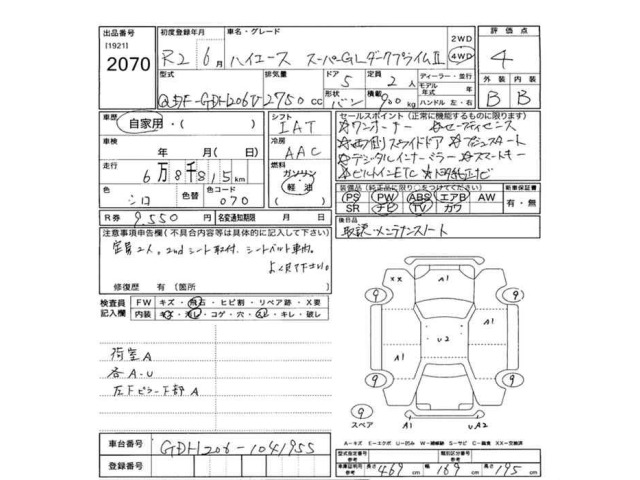 出品番号
[1921]
2070
初度登録年月
R2 6月
車名・グレード
ハイエース スーパーGLダークプライムⅡ
2WD
4WD
評価点
4
型式
QDF-GDH206V
排気量
2750 cc
ドア
5
形状
バン
定員
2人
積載
900 kg
ディーラー・並行
モデル年式 年
ハンドル 左・右
外装 内装
B B
車歴
自家用・( )
車検
年 月( )
走行
6万8千815km
色
シロ
色替
コード
070
シフト
IAT
冷房
AAC
燃料
ガソリン
軽油
セールスポイント(正常に機能するものに限ります)
☆ワンオーナー ☆セーフティセンス
☆両側スライドドア ☆プッシュスタート
☆デジタルインナーミラー ☆スマートキー
☆ビルトインETC
装備品(純正品に限り○をつけてください)
PS PW ABS エアB AW
SR ナビ TV カワ
新車保証書
有・無
R券
9,550円
名変通知期限 月 日
後日品
取説・メンテナンスノート
注意事項申告欄(不具合内容等は具体的に記入して下さい)
定員2人。2ndシート取付、シートベルト車内。
よく見て下さい。
修復歴 有〔箇所 〕
検査員
記入欄
FW キズ・飛石・ヒビ割・リペア跡・X要
内装 キズ・汚レ・コゲ・穴・スレ・キレ・破レ
荷室A
各A-U
左下ピラー下部A
××
A1
9
9
U2
A1
A1
9
9
9
スペア
A1
UA2
A-キズ E-エクボ U-凹み W-補修跡 S-サビ C-腐食 XX-交換済
車台番号
GDH206-1041955
登録番号
型式指定番号
参考
類別区分番号
参考
車庫証明用
参考
長さ 469 cm
幅 169 cm
高さ 195 cm